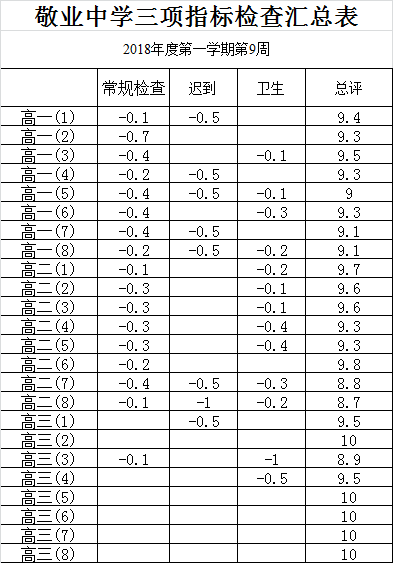 敬业中学三项指标检查汇总表
2018年度第一学期第9周
常规检查 迟到 卫生 总评
高一(1) -0.1 -0.5 9.4
高一(2) -0.7 9.3
高一(3) -0.4 -0.1 9.5
高一(4) -0.2 -0.5 9.3
高一(5) -0.4 -0.5 -0.1 9
高一(6) -0.4 -0.3 9.3
高一(7) -0.4 -0.5 9.1
高一(8) -0.2 -0.5 -0.2 9.1
高二(1) -0.1 -0.2 9.7
高二(2) -0.3 -0.1 9.6
高二(3) -0.3 -0.1 9.6
高二(4) -0.3 -0.4 9.3
高二(5) -0.3 -0.4 9.3
高二(6) -0.2 9.8
高二(7) -0.4 -0.5 -0.3 8.8
高二(8) -0.1 -1 -0.2 8.7
高三(1) -0.5 9.5
高三(2) 10
高三(3) -0.1 -1 8.9
高三(4) -0.5 9.5
高三(5) 10
高三(6) 10
高三(7) 10
高三(8) 10